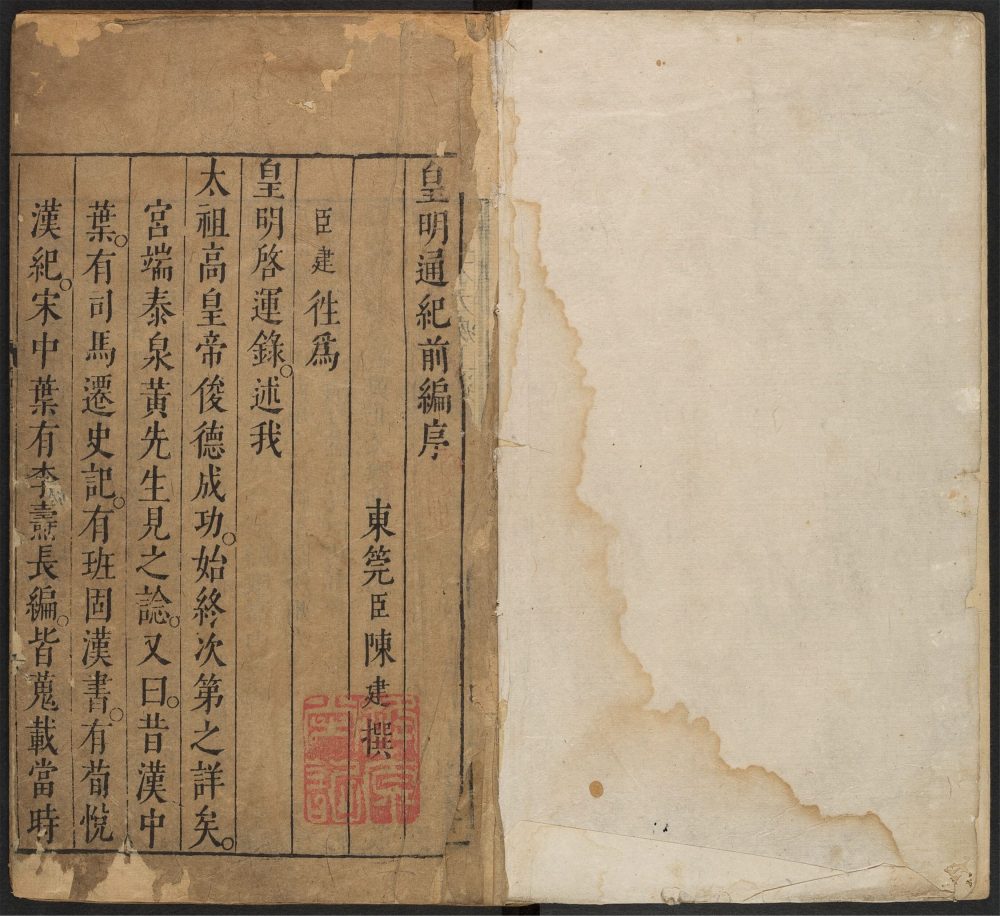 皇明通紀前編序
東筦臣陳建撰
臣建徃爲
皇明啓運錄。述我
太祖高皇帝俊德成功。始終次第之詳矣。
宮端泰泉黃先生見之諗。又曰。昔漢中
葉。有司馬遷史記。有班固漢書。有荀悅
漢紀。宋中葉有李燾長編。皆蒐載當時